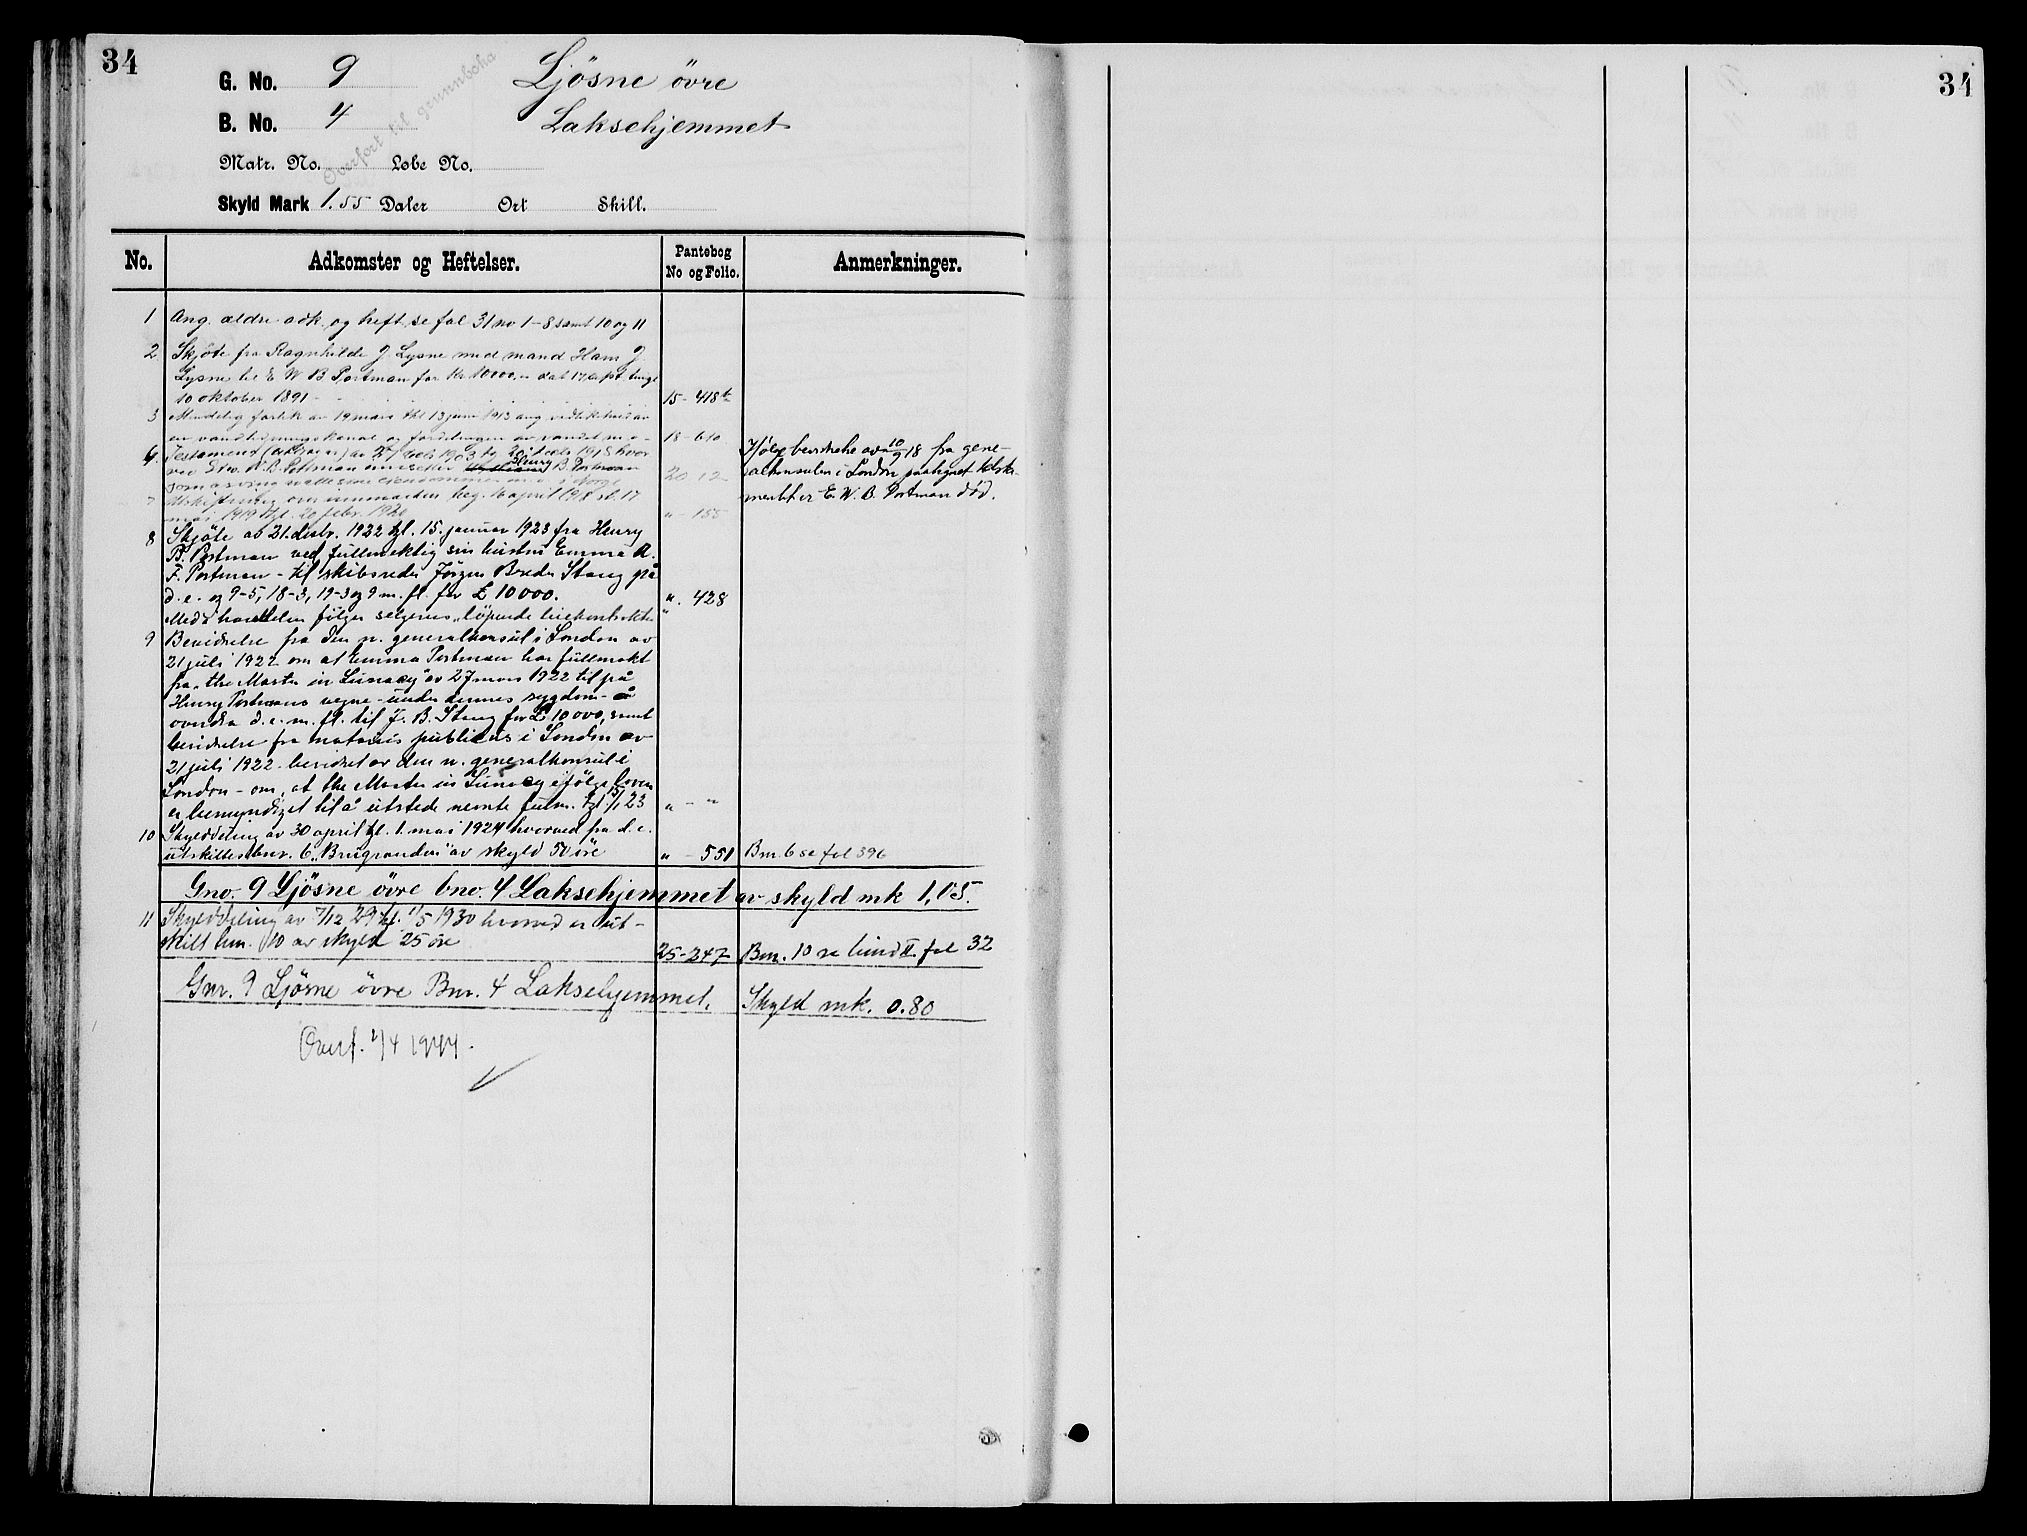 34
G. No. 9 Ljösne övre
B. No. 4 Laksehjemmet
Overført til grunnboka
Matr. No. Løbe No.
Skyld Mark 1.55 Daler Ort Skill.
No. Adkomster og Heftelser. Pantebog No og Folio. Anmerkninger.
1 Ang. ældre adk. og heft. se fol 31 no 1-8 samt 10 og 11
2 Skjöte fra Ragnhilde J. Lysne med mand Hans J.
Lysne til E W B Portman for Kr 10000,- dat 17 sept tingl
10 oktober 1891 15-418
3 Mindelig forlik av 19 mars thl 13 juni 1913 ang. vedlikehold av
en vandledningskanal og fordelingen av vandet m.v. 18-610
6. Testament av 1903 1918 hvor
ved Edw. W. B. Portman Henry B. Portman
som arving eiendommer i Norge 20 12
Ifölge bevidnelse av 10/9 18 fra gene-
ralkonsulen i London paategnet testa-
mentet er E. W. B. Portman död.
7 Utskiftning over innmarken beg. 16 april
mai 1919 thgl. 20 febr. 1920 " - 155
8 Skjöte av 21. desbr. 1922 tgl. 15. januar 1923 fra Henry
B. Portman ved fullmektig sin hustru Emma A.
F. Portman - til skibsreder Jörgen Breder Stang på
d. e. og 9-5, 18-3, 19-3 og 9 m. fl. for £ 10000. ". 428
Med i handelen følger selgerens löpende leiekontrakter "
9 Bevidnelse fra den n. generalkonsul i London av
21 juli 1922 om at Emma Portman har fullmakt
fra "the Master in Lunacy" av 27 mars 1922 til på
Henry Portmans vegne - under dennes sygdom - å
overdra d. e. m. fl. til J. B. Stang for £ 10000, samt
bevidnelse fra notarius publicus i London av
21 juli 1922 - bevidnet av den n. generalkonsul i
London - om, at the Master in Lunacy ifölge loven
er bemyndiget til å utstede nevnte fullm. tgl 15/1 23 " - "
10 Skylddeling av 30 april tgl. 1. mai 1924 hvorved fra d. e.
utskilles bnr. 6 "Brugranden" av skyld 50 öre " - 551 Bnr. 6 se fol 396
Gno. 9 Ljösne övre bno. 4 Laksehjemmet av skyld mk 1,05.
11 Skylddeling av 7/12 29 tgl. 1/5 1930 hvorved er ut-
skilt bnr. 10 av skyld 25 öre 25-247 Bnr. 10 se bind II. fol 32
Gnr. 9 Ljösne övre Bnr. 4 Laksehjemmet. Skyld mk. 0.80
Overf. 4 1944.
34